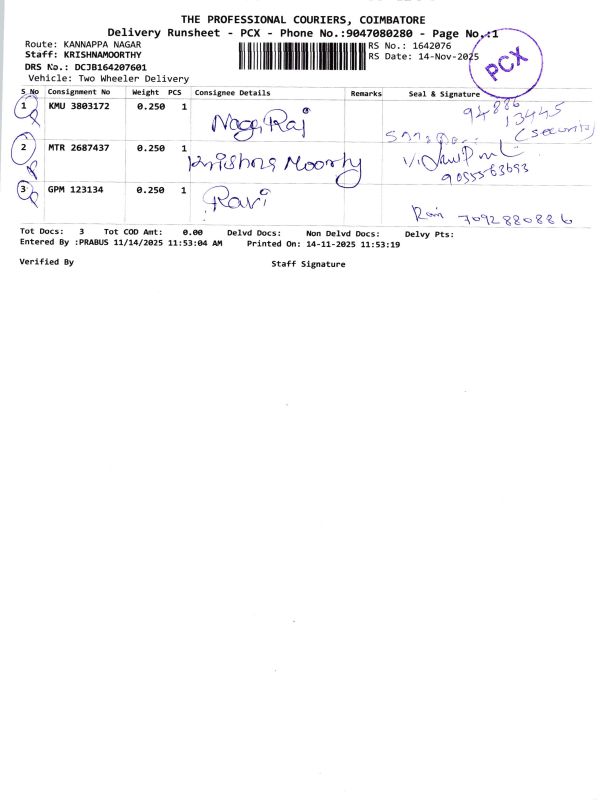 THE PROFESSIONAL COURIERS, COIMBATORE
Delivery Runsheet - PCX - Phone No.:9047080280 - Page No.:1
Route: KANNAPPA NAGAR
RS No.: 1642076
Staff: KRISHNAMOORTHY
RS Date: 14-Nov-2025
DRS No.: DCJB164207601
PCX
Vehicle: Two Wheeler Delivery
S No Consignment No Weight PCS Consignee Details Remarks Seal & Signature
1 KMU 3803172 0.250 1 Nagi Raj 94886 13445 (security)
2 MTR 2687437 0.250 1 Krishna Moorthy
3 GPM 123134 0.250 1 Ravi Rani 7092880886
Tot Docs: 3 Tot COD Amt: 0.00 Delvd Docs: Non Delvd Docs: Delvy Pts:
Entered By :PRABUS 11/14/2025 11:53:04 AM Printed On: 14-11-2025 11:53:19
Verified By Staff Signature